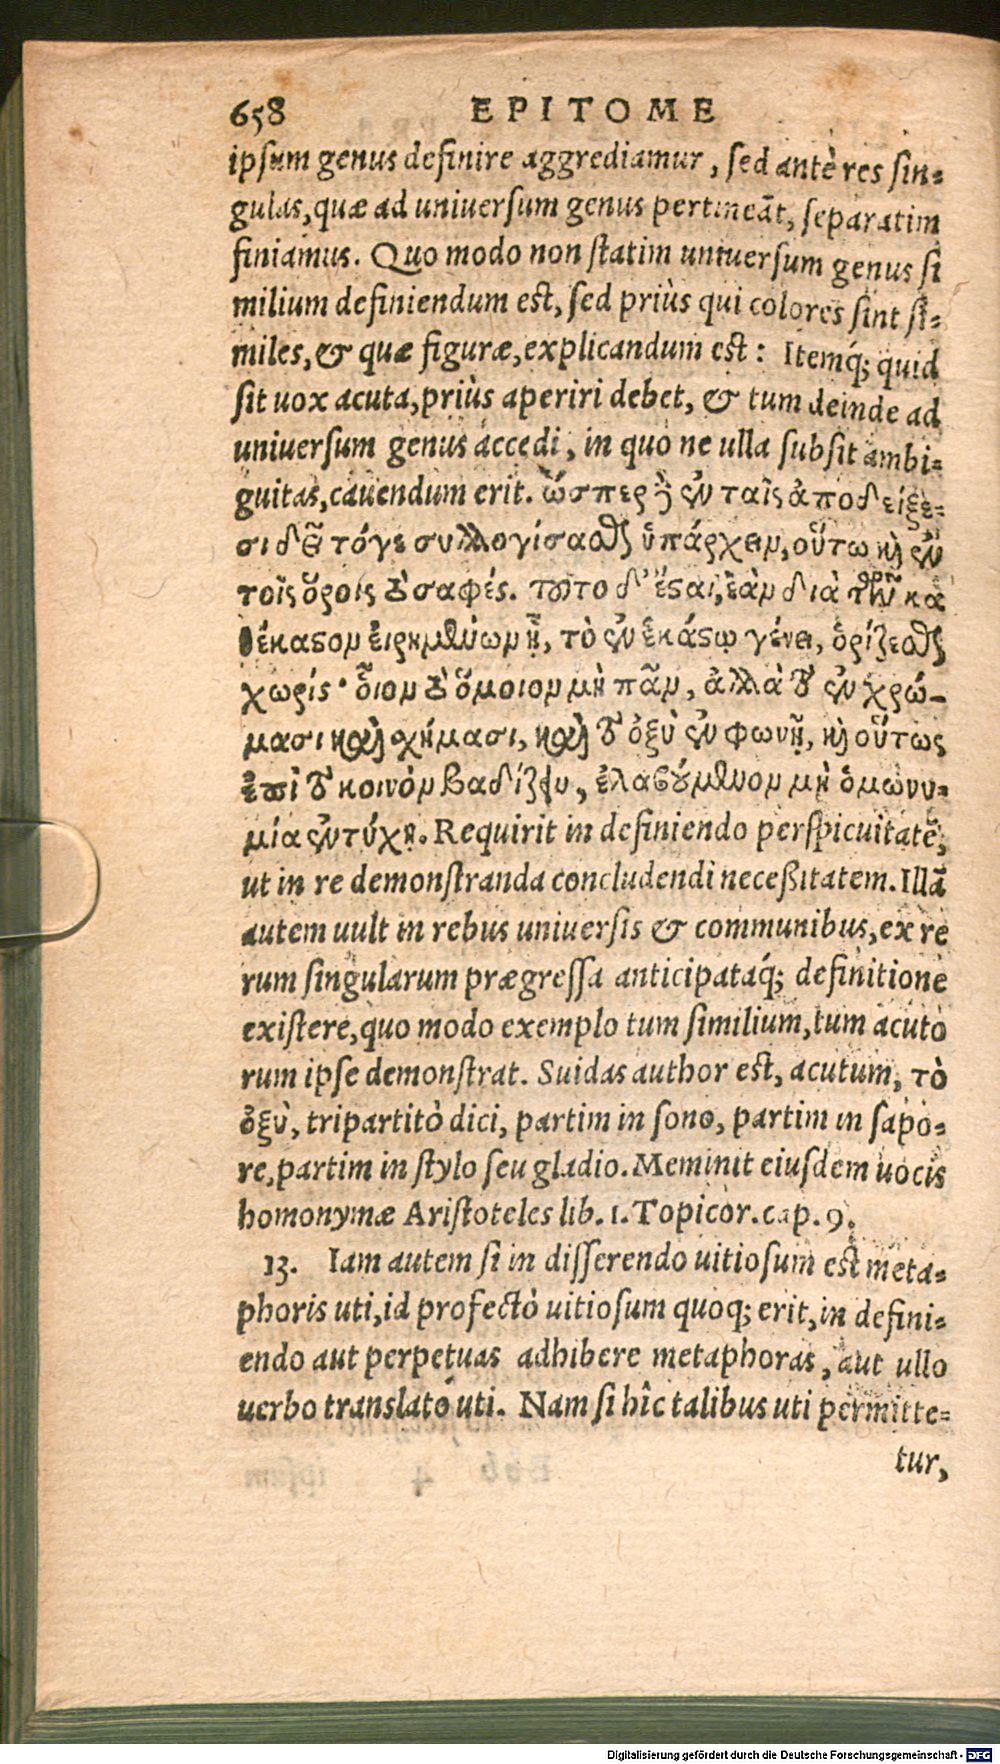 658 EPITOME
ipsum genus definire aggrediamur, sed antè res sin-
gulas, quæ ad uniuersum genus pertineāt, separatim
finiamus. Quo modo non statim uniuersum genus si
milium definiendum est, sed priùs qui colores sint si-
miles, & quæ figuræ, explicandum est: Itemq́; quid
sit uox acuta, priùs aperiri debet, & tum deinde ad
uniuersum genus accedi, in quo ne ulla subsit ambi-
guitas, cauendum erit. ὥσπερ ἢ ἐν ταῖς ἀποδείξε-
σι δεῖ τόγε συλλογίσασθαι ὑπάρχειν, οὕτω καὶ ἐν
τοῖς ὅροις τὸ σαφές. τοῦτο δ' ἔσαι, ἐὰν διὰ τῶν κα
θέκαστον εἰρημένων ᾖ, τὸ ἐν ἑκάστῳ γένει, ὁρίζεσθαι
χωρίς· οἷον τὸ ὅμοιον μὴ πᾶν, ἀλλὰ τὸ ἐν χρώ-
μασι καὶ χήμασι, καὶ τὸ ὀξὺ ἐν φωνῇ, καὶ οὕτως
ἐπὶ τὸ κοινὸν βαδίζειν, ἐλαβούμενον μὴ ὁμωνυ-
μία ἐντύχῃ. Requirit in definiendo perspicuitatē,
ut in re demonstranda concludendi neceßitatem. Illā
autem uult in rebus uniuersis & communibus, ex re
rum singularum prægressa anticipataq́; definitione
existere, quo modo exemplo tum similium, tum acuto
rum ipse demonstrat. Suidas author est, acutum, τὸ
ὀξὺ, tripartitò dici, partim in sono, partim in sapo-
re, partim in stylo seu gladio. Meminit eiusdem uocis
homonymæ Aristoteles lib. 1. Topicor. cap. 9.
13. Iam autem si in disserendo uitiosum est meta-
phoris uti, id profectò uitiosum quoq; erit, in defini-
endo aut perpetuas adhibere metaphoras, aut ullo
uerbo translato uti. Nam si hîc talibus uti permitte-
tur,
Digitalisierung gefördert durch die Deutsche Forschungsgemeinschaft - DFG